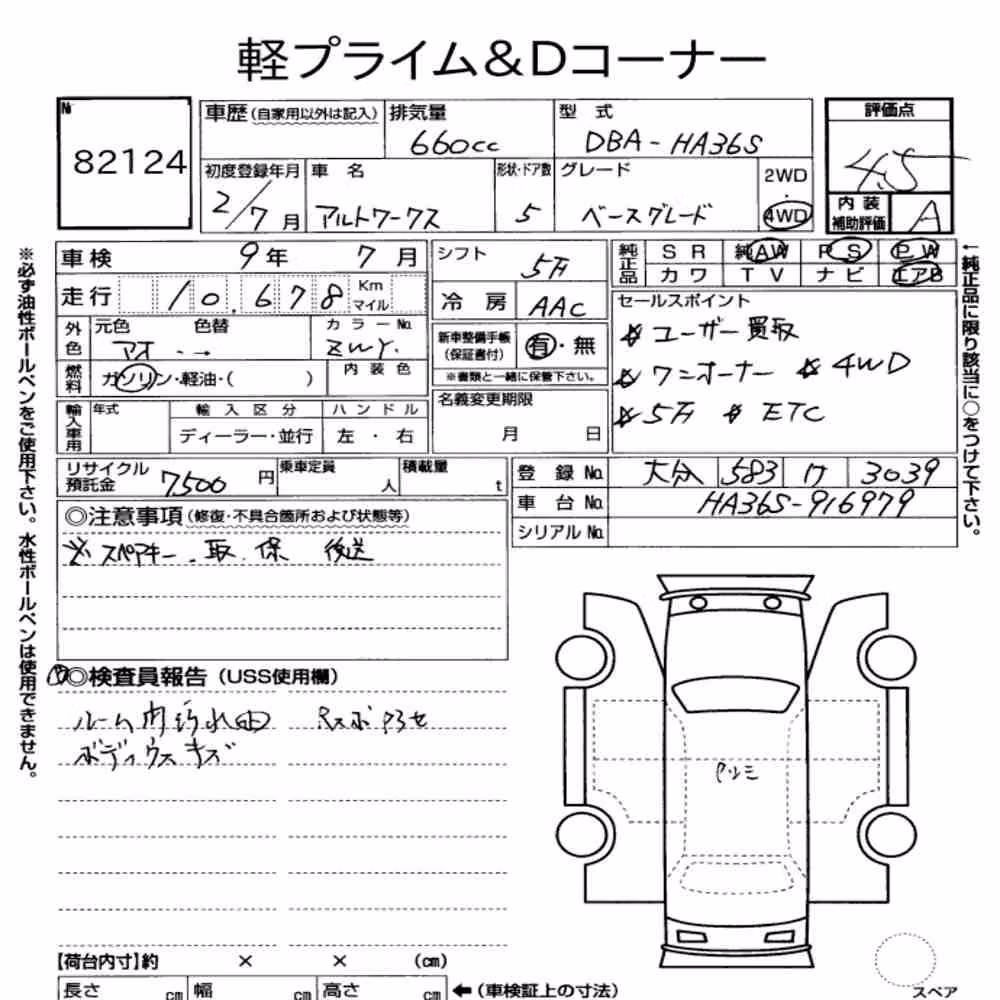 軽プライム&Dコーナー
№
82124
車歴(自家用以外は記入)
排気量
660cc
型 式
DBA-HA36S
評価点
4.5
初度登録年月
2/7月
車 名
アルトワークス
形状・ドア数
5
グレード
ベースグレード
2WD
・
4WD
内 装
補助評価
A
車検 9年 7月
走行 10.678 Km
マイル
外色
元色 色替
アオ ・→
カラーNo.
ZWY.
燃料
ガソリン・軽油・( )
内 装 色
輸入車用
年式
輸 入 区 分
ハ ン ド ル
ディーラー・並行
左 ・ 右
シフト
5F
冷 房
AAC
新車整備手帳
(保証書付)
有・無
※書類と一緒に保管下さい。
名義変更期限
月 日
純正品
S R 純AW P S P W
カ ワ T V ナ ビ エアB
セールスポイント
☆ ユーザー買取
☆ ワンオーナー ☆ 4WD
☆ 5F ☆ ETC
リサイクル
預託金
7500円
乗車定員
人
積載量
t
登 録 No. 大分 583 ワ 3039
車 台 No. HA36S-916979
シリアル No.
◎注意事項(修復・不具合箇所および状態等)
※ スペアキー . 取. 保 後送
◎検査員報告(USS使用欄)
ルーム内汚れ凹
ボディウスキズ
【荷台内寸】約 × × (cm)
長さ cm 幅 cm 高さ cm
←(車検証上の寸法)
スペア
※必ず油性ボールペンをご使用下さい。水性ボールペンは使用できません。
←純正品に限り該当に○をつけて下さい。